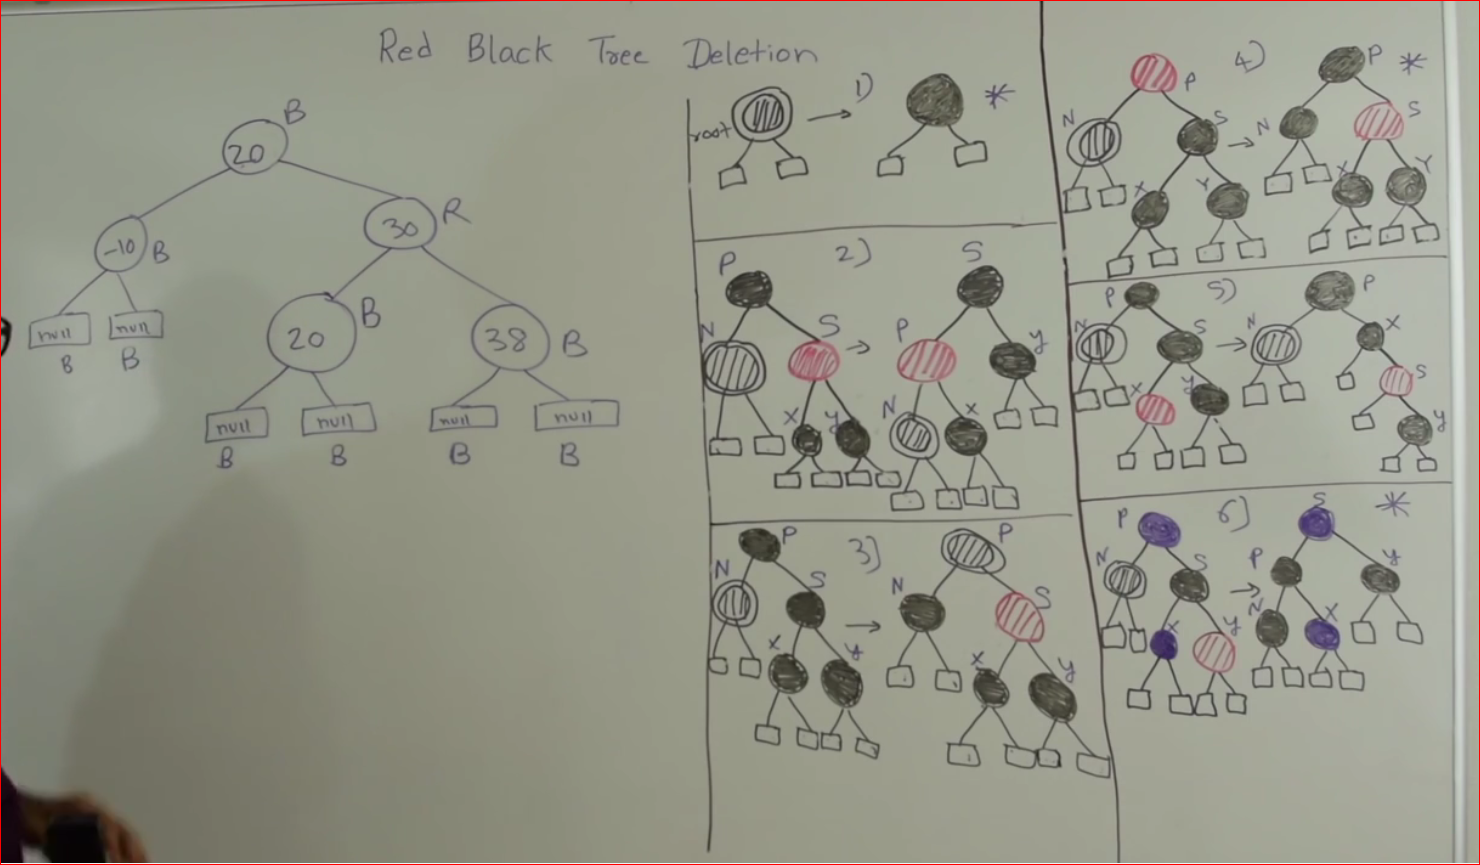 Red Black Tree Deletion
B
20
-10
B
30
R
null
null
B
B
20
B
38
B
null
null
null
null
B
B
B
B
root
→
1)
*
2)
P
N
S
X
y
→
S
P
y
N
X
3)
P
N
S
X
y
→
P
N
S
X
y
4)
P
N
S
X
Y
→
P
*
N
S
X
Y
5)
P
N
S
X
y
→
N
P
X
S
y
6)
P
N
S
X
y
→
S
*
P
y
N
X